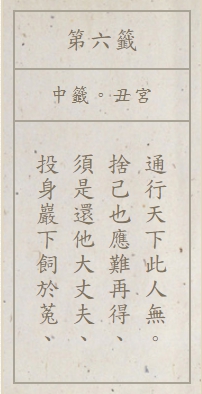 第六籤
中籤。丑宮
投身巖下飼於菟、
須是還他大丈夫、
捨己也應難再得、
通行天下此人無。